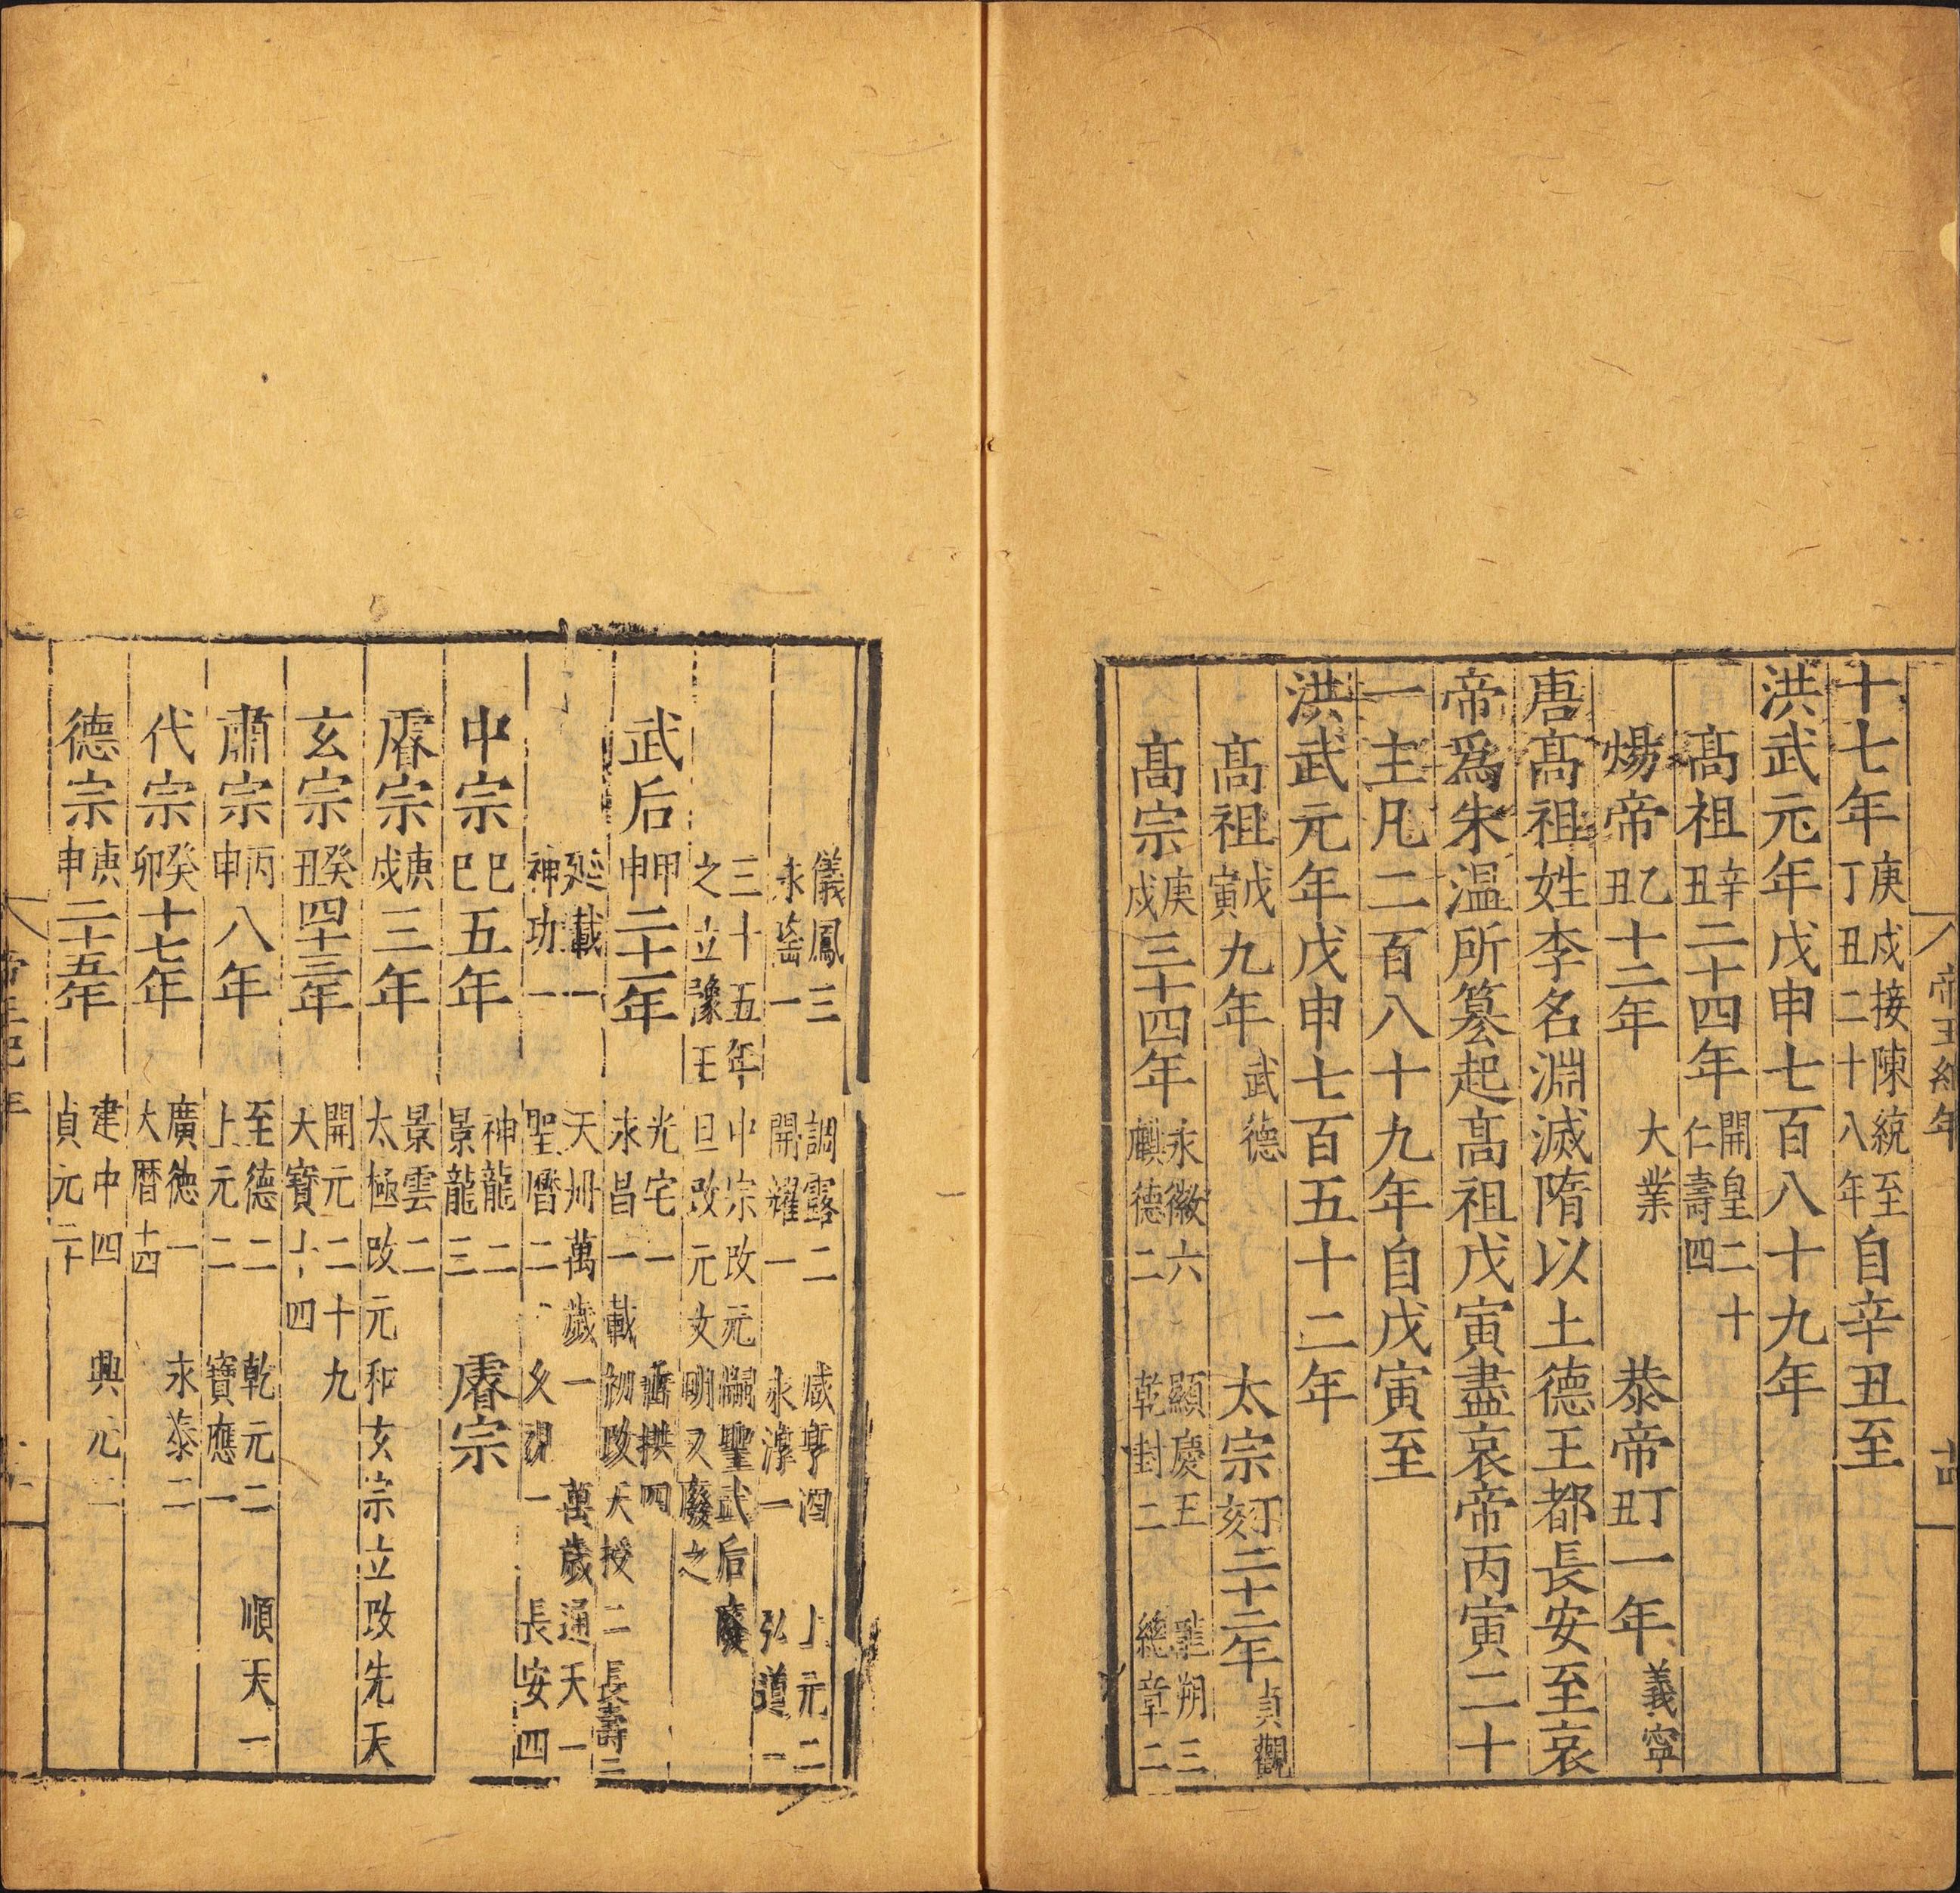 帝王紀年
十七年庚戍接陳統至丁丑二十八年自辛丑至
洪武元年戊申七百八十九年
高祖辛丑二十四年開皇二十仁壽四
煬帝乙丑十二年大業恭帝丁丑一年義寧
唐髙祖姓李名淵滅隋以土德王都長安至哀
帝爲朱温所簒起髙祖戊寅盡哀帝丙寅二十
一主凡二百八十九年自戊寅至
洪武元年戊申七百五十二年
髙祖戊寅九年武德太宗丁亥二十二年貞觀
髙宗庚戍三十四年永徽六顯慶五龍朔三麟德二乾封二總章二
儀鳳三調露二咸亨四上元二永隆一開耀一永淳一弘道一
三十五年中宗改元嗣聖武后廢之立豫王旦改元文明又廢之
武后甲申二十一年光宅一垂拱四永昌一載初改天授二長壽三
延載一天冊萬歲一萬歲通天一神功一聖曆二久視一長安四
中宗乙巳五年神龍二景龍三睿宗
睿宗庚戍三年景雲二太極改元和玄宗立改先天
玄宗癸丑四十三年開元二十九天寶十四
肅宗丙申八年至德二乾元二順天一上元二寶應一
代宗癸卯十七年廣德一永泰二大曆十四
德宗庚申二十五年建中四興元一貞元二十
帝王紀年